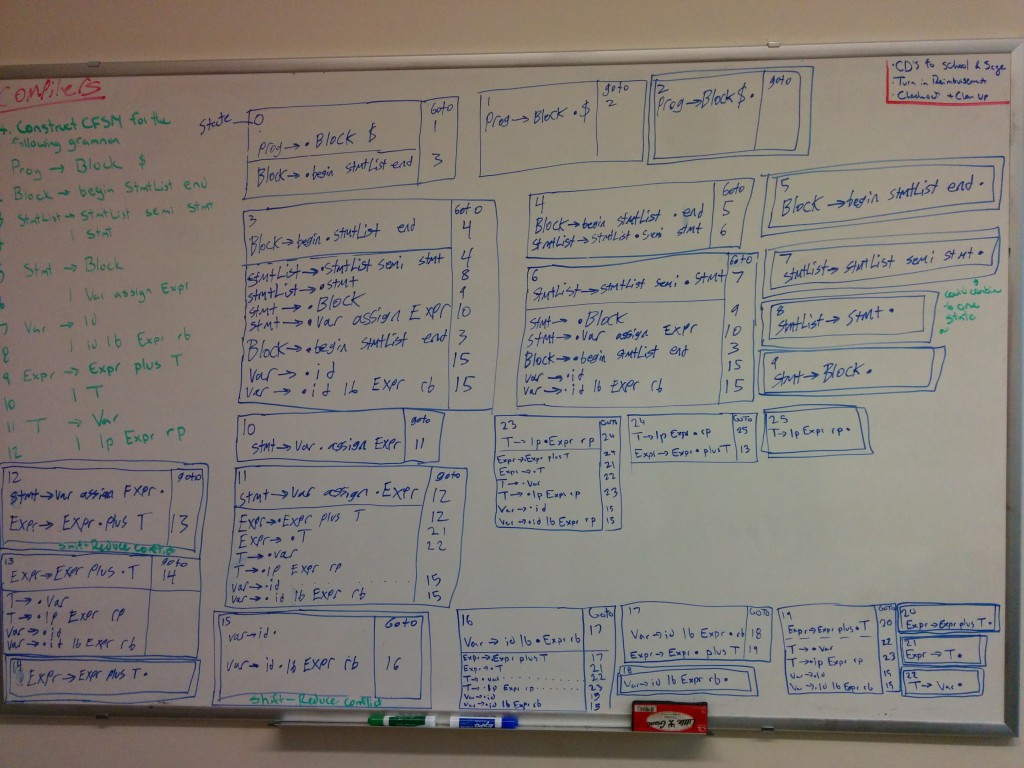 Compilers
4. Construct CFSM for the
following grammar
Prog → Block $
2 Block → begin StmtList end
3 StmtList → StmtList semi Stmt
4 | Stmt
5 Stmt → Block
6 | Var assign Expr
7 Var → id
8 | id lb Expr rb
9 Expr → Expr plus T
10 | T
11 T → Var
12 | lp Expr rp
·CD's to School & Sage
·Turn in Reimbursement
·Cleanout + Clean up
State
0 Goto
Prog→•Block $ 1
Block→•begin stmtList end 3
1 goto
Prog→Block•$ 2
2 goto
Prog→Block$•
3 Goto
Block→begin•stmtList end 4
stmtList→•stmtList semi stmt 4
stmtList→•stmt 8
stmt→•Block 9
stmt→•var assign Expr 10
Block→•begin stmtList end 3
Var→•id 15
Var→•id lb Expr rb 15
4 Goto
Block→begin stmtList•end 5
stmtList→stmtList•semi stmt 6
5
Block→begin stmtList end•
6 Goto
StmtList→stmtList semi•Stmt 7
Stmt→•Block 9
stmt→•var assign Expr 10
Block→•begin stmtList end 3
var→•id 15
var→•id lb Expr rb 15
7
stmtList→stmtList semi stmt•
8
StmtList→Stmt•
to one
state
9
Stmt→Block•
10 goto
stmt→var•assign Expr 11
11 goto
stmt→var assign•Expr 12
Expr→•Expr plus T 12
Expr→•T 21
T→•var 22
T→•lp Expr rp
var→•id 15
var→•id lb Expr rb 15
12 goto
stmt→var assign Expr•
Expr→Expr•plus T 13
Shift-Reduce conflict
13 goto
Expr→Expr plus•T 14
T→•Var
T→•lp Expr rp
Var→•id
Var→•id lb Expr rb
14
Expr→Expr plus T•
15 Goto
var→id•
var→id•lb Expr rb 16
Shift-Reduce conflict
16 Goto
Var→id lb•Expr rb 17
Expr→•Expr plus T 17
Expr→•T 21
T→•var 22
T→•lp Expr rp 23
Var→•id 15
Var→•id lb Expr rb 15
17 GOTO
Var→id lb Expr•rb 18
Expr→Expr•plus T 19
18
Var→id lb Expr rb•
19 GOTO
Expr→Expr plus•T 20
T→•Var 22
T→•lp Expr rp 23
Var→•id 15
Var→•id lb Expr rb 15
20
Expr→Expr plus T•
21
Expr→T•
22
T→Var•
23 GOTO
T→lp•Expr rp 24
Expr→•Expr plus T 24
Expr→•T 21
T→•Var 22
T→•lp Expr rp 23
Var→•id 15
Var→•id lb Expr rp 15
24 GOTO
T→lp Expr•rp 25
Expr→Expr•plus T 13
25
T→lp Expr rp•